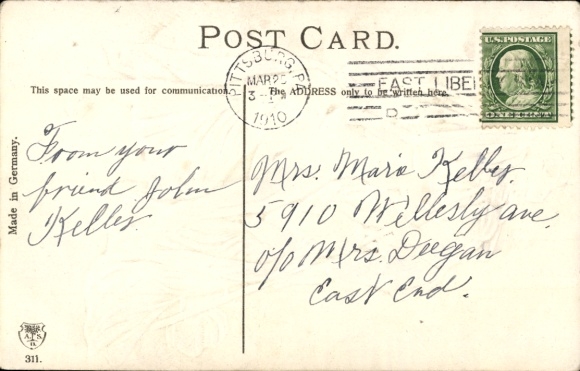 POST CARD.
PITTSBURG, PA.
MAR 25
3
1910
EAST LIBE
U.S. POSTAGE
ONE CENT
This space may be used for communication.
The ADDRESS only to be written here.
Made in Germany.
From your
friend John
Kelley.
Mrs. Marie Kelley.
5910 Wellesly ave.
c/o Mrs. Deegan
East End.
A.S.
311.